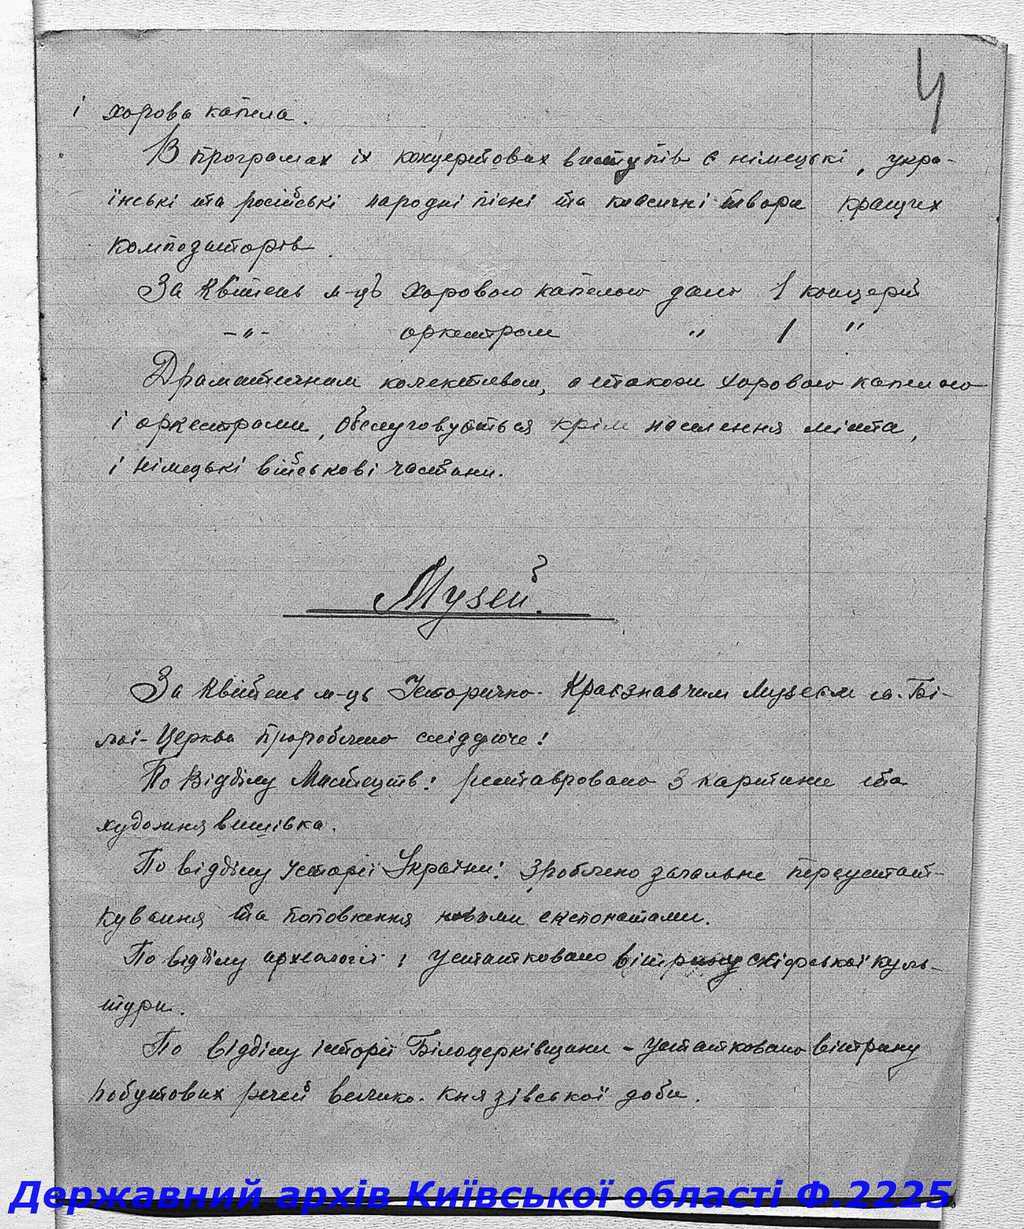 4
і хорова капела.
В програмах їх концертових виступів є німецькі, укра-
їнські та російські народні пісні та класичні твори кращих
композиторів.
За Квітень м-ць хоровою капелою дано 1 концерт
-"- оркестром " 1 "
Драматичним колективом, а також хоровою капелою
і оркестрами, обслуговується крім населення міста,
і німецькі військові частини.
Музей.
За Квітень м-ць Історично-Краєзнавчим Музеєм м. Бі-
лої-Церкви пророблено слідуюче:
По Відділу Мистецтв: реставровано 3 картини та
художня вишівка.
По відділу історії України: зроблено загальне переустат-
кування та поповнення новими експонатами.
По відділу археології: устатковано вітрину скіфської куль-
тури.
По відділу історії Білоцерківщини - устатковано вітрину
побутових речей велико-князівської доби.
Державний архів Київської області Ф.2225